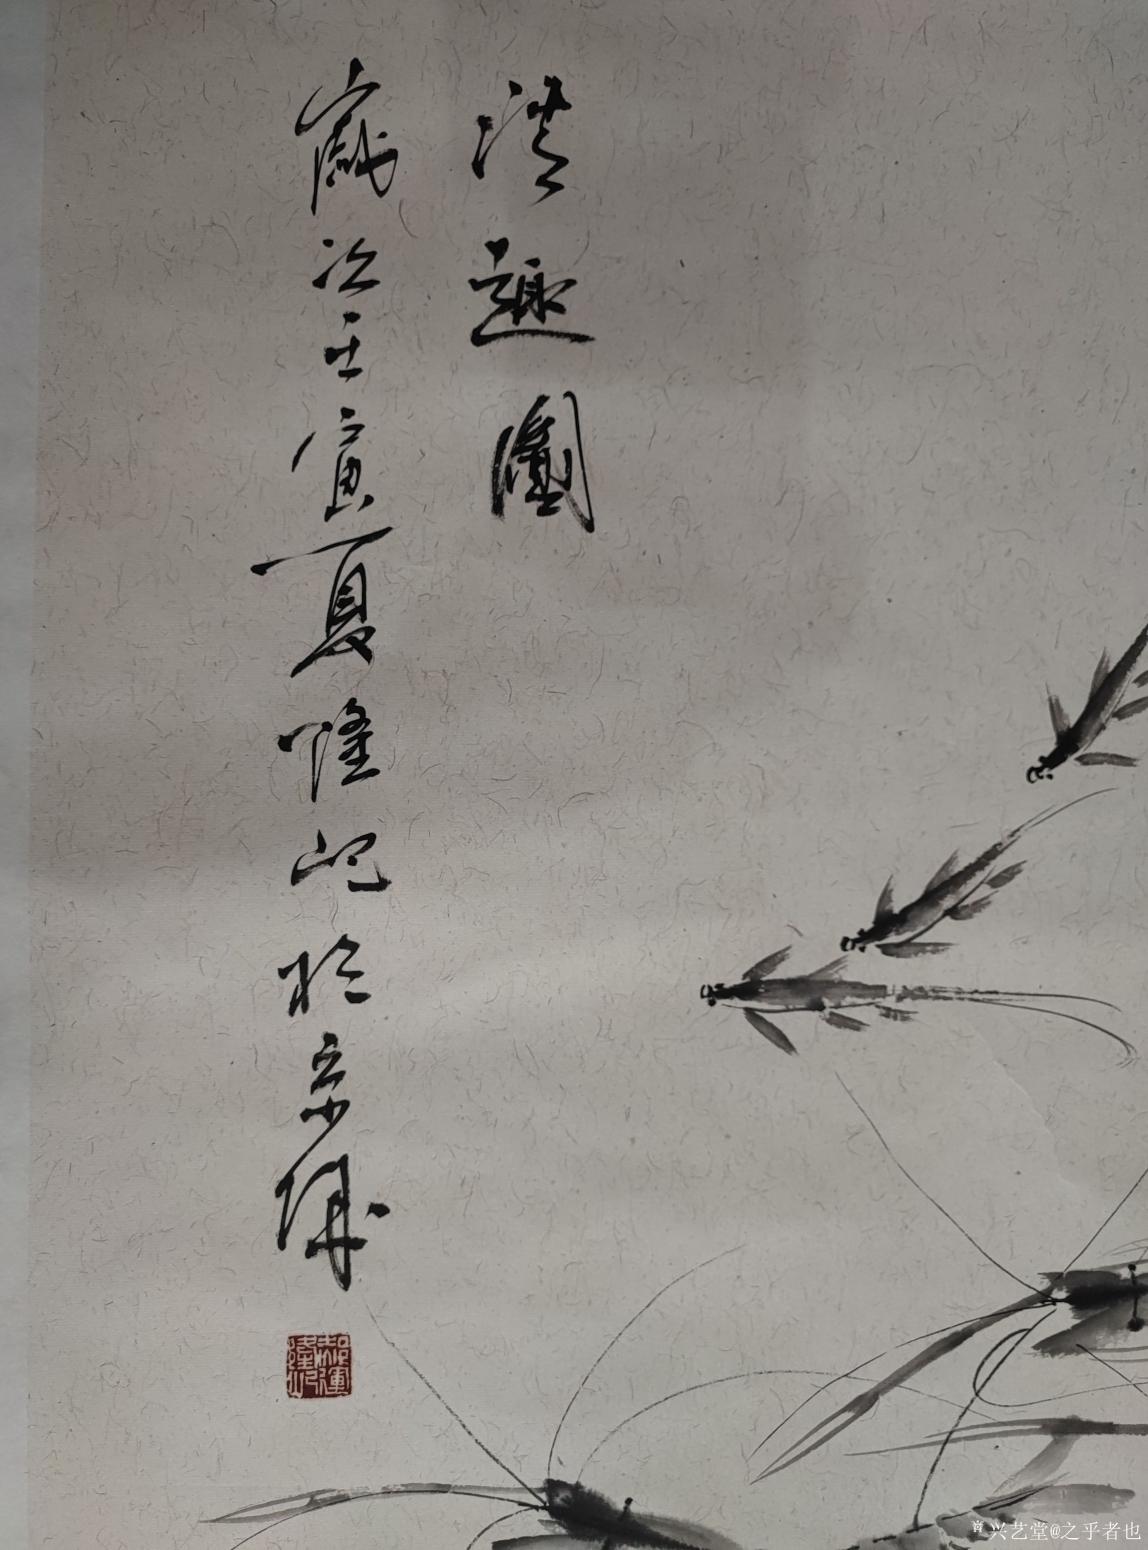 趣圖
歲次壬寅夏隆於京城
兴艺堂@之乎者也